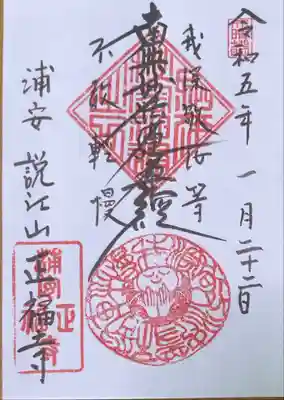 令和五年 一月二十二日
我深敬汝等
南無妙法蓮華經
不敢軽慢
浦安 説江山 正福寺